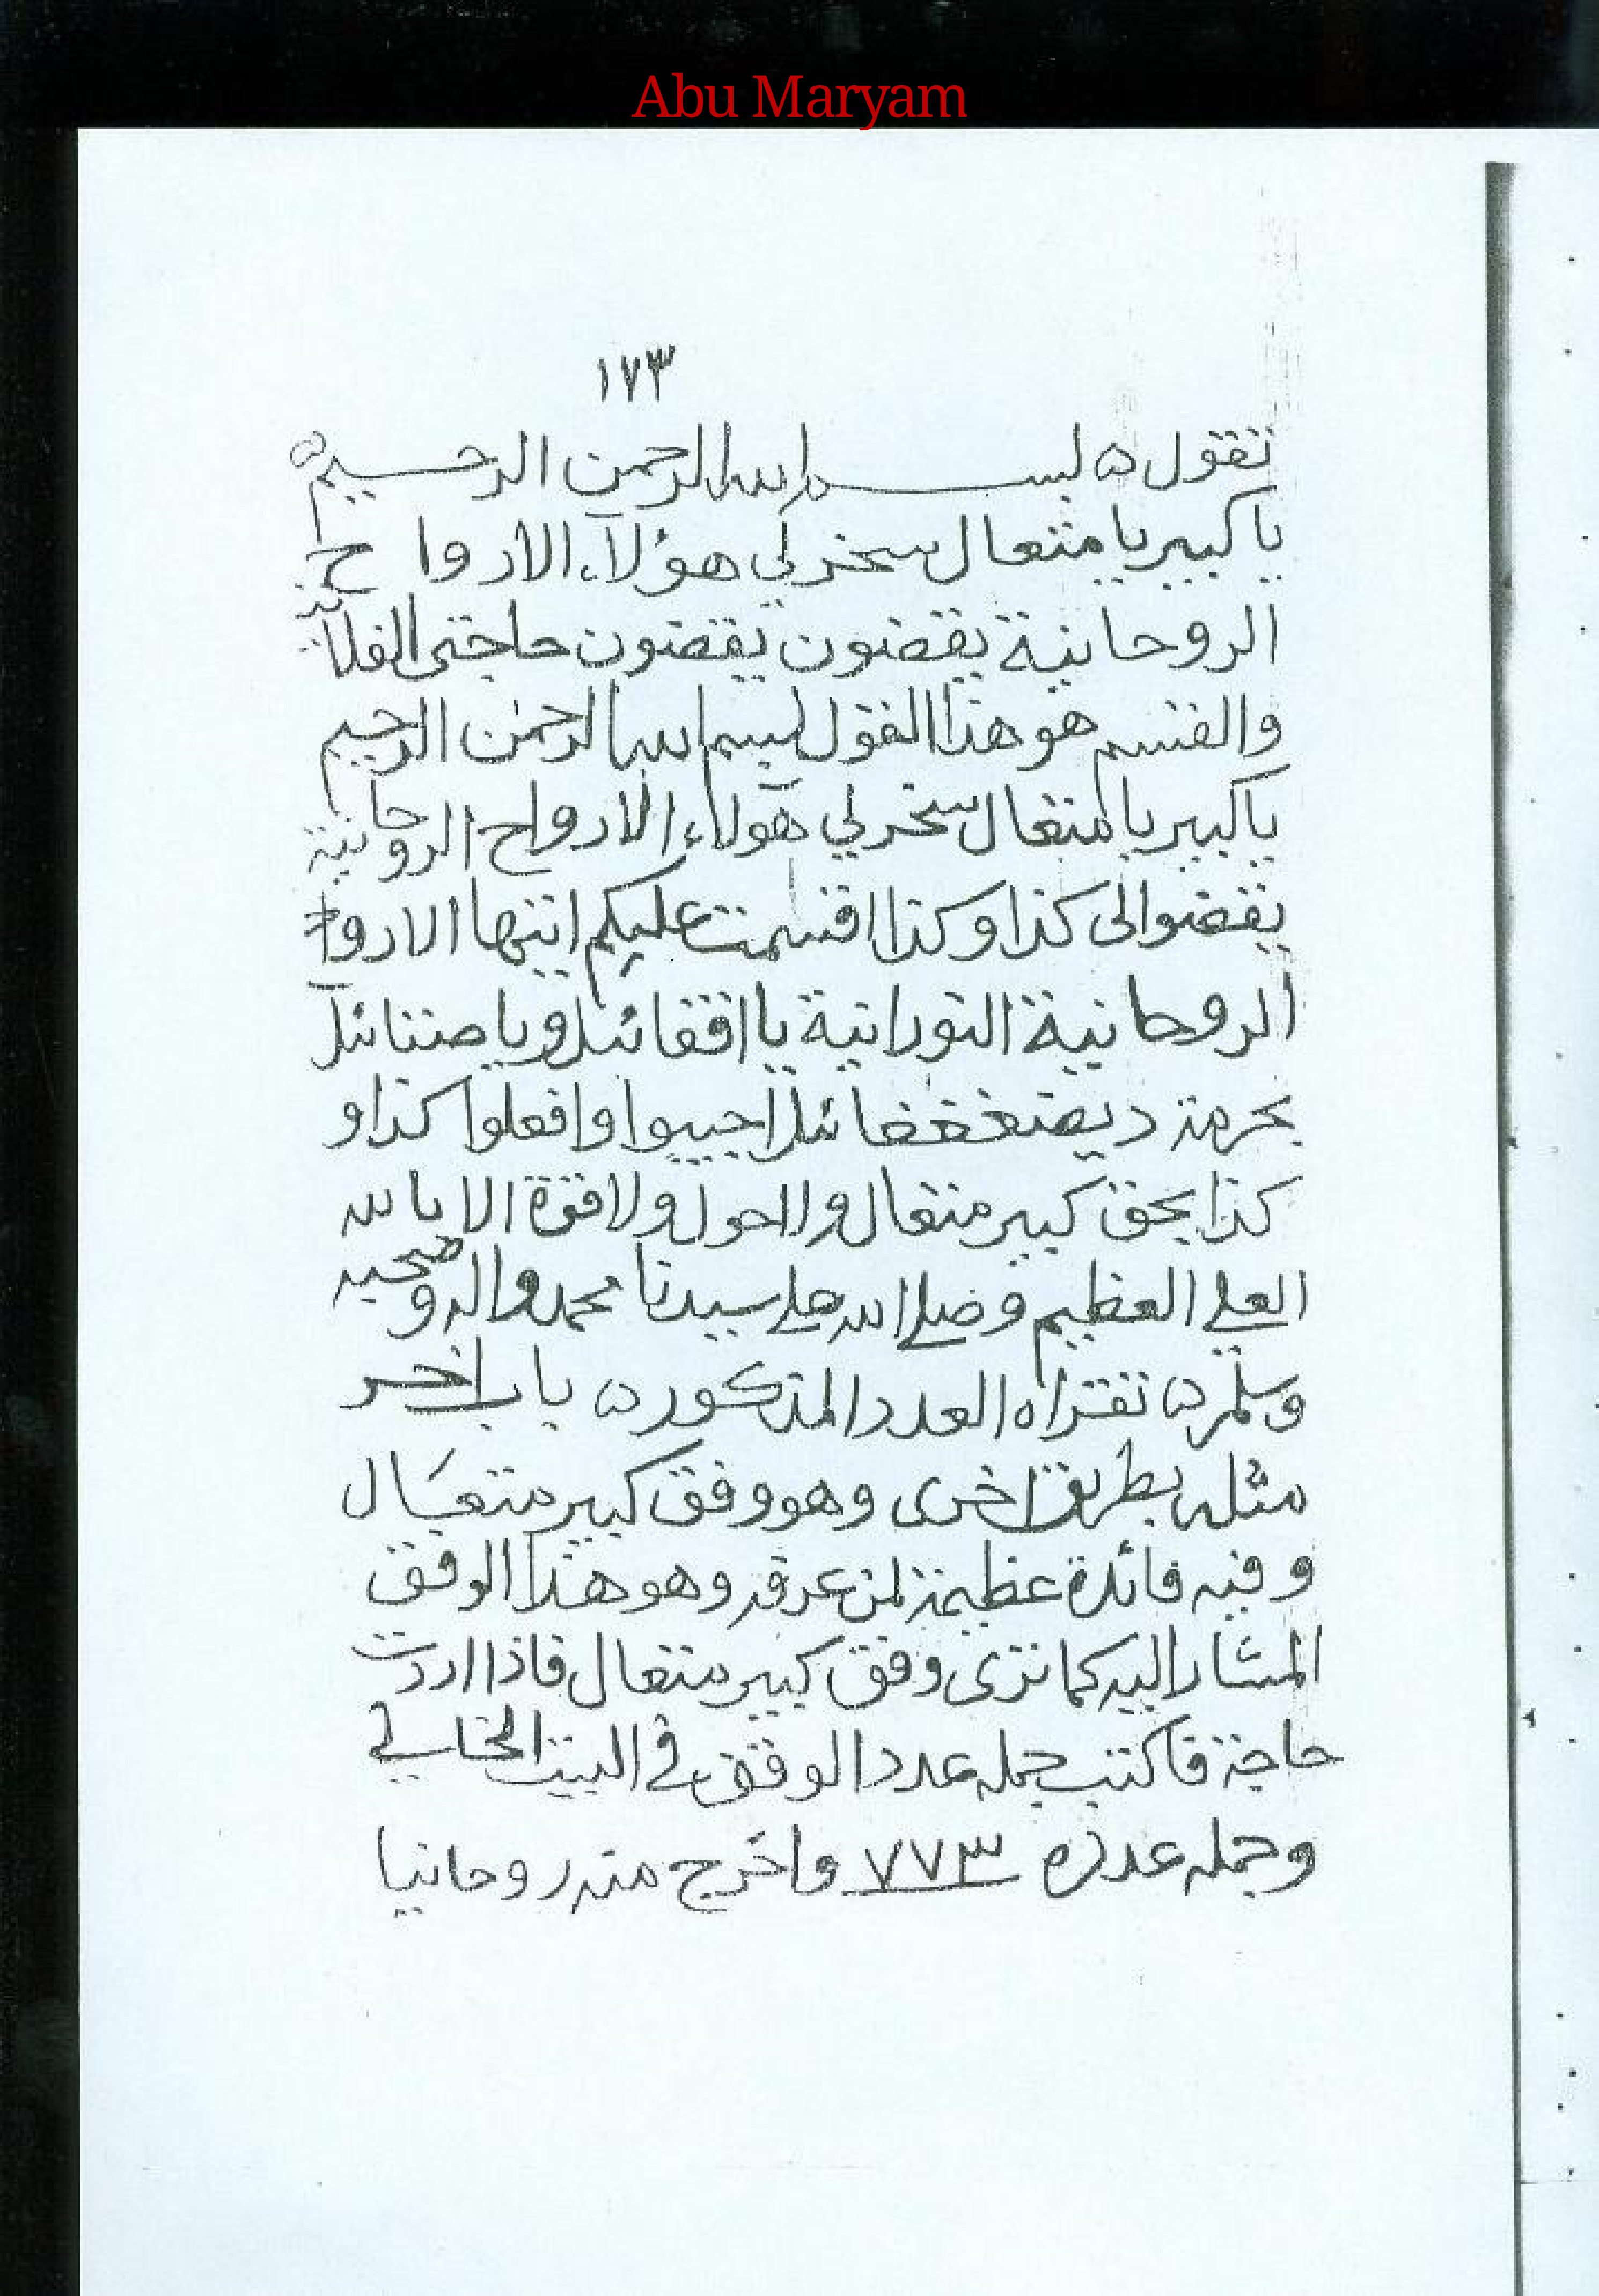 Abu Maryam
١٧٣
تقول ه بسم الله الرحمن الرحيم ه
يا كبير يا متعال سخر لي هؤلآء الارواح
الروحانية يقضون يقضون حاجتى الفلانية
والقسم هو هذا القول بسم الله الرحمن الرحيم
يا كبير يا متعال سخر لي هولآء الارواح الروحانية
يقضوا لى كذا وكذا اقسمت عليكم ايتها الارواح
الروحانية النورانية يا
بحرمة اجيبوا وافعلوا كذا و
كذا بحق كبير متعال ولا حول ولا قوة الا بالله
العلي العظيم وصلى الله على سيدنا محمد واله وصحبه
وسلم ه تقراه العدد المذكور ه باب اخر
مثله بطريق اخرى وهو وفق كبير متعال
وفيه فائدة عظيمة لمن عرفه وهو هذا الوفق
المشار اليه كما ترى وفق كبير متعال فاذا اردت
حاجة فاكتب جملة عدد الوفق في البيت الخالي
وجملة عدده ٧٧٣ واخرج منه روحانيا